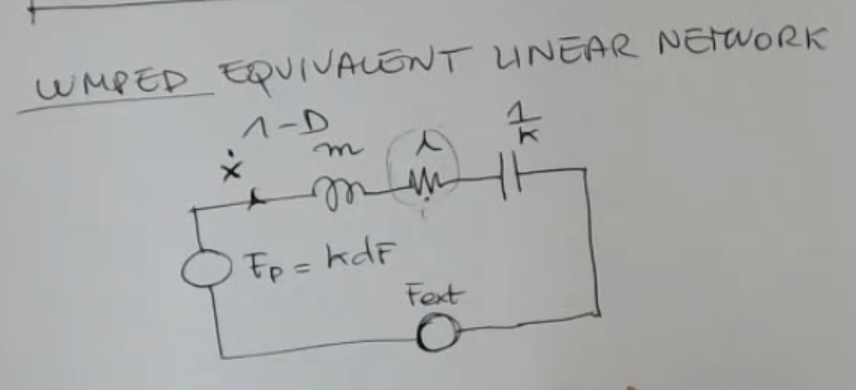 LUMPED EQUIVALENT LINEAR NETWORK
1-D
ẋ
m
λ
1/k
Fp = kdF
Fext